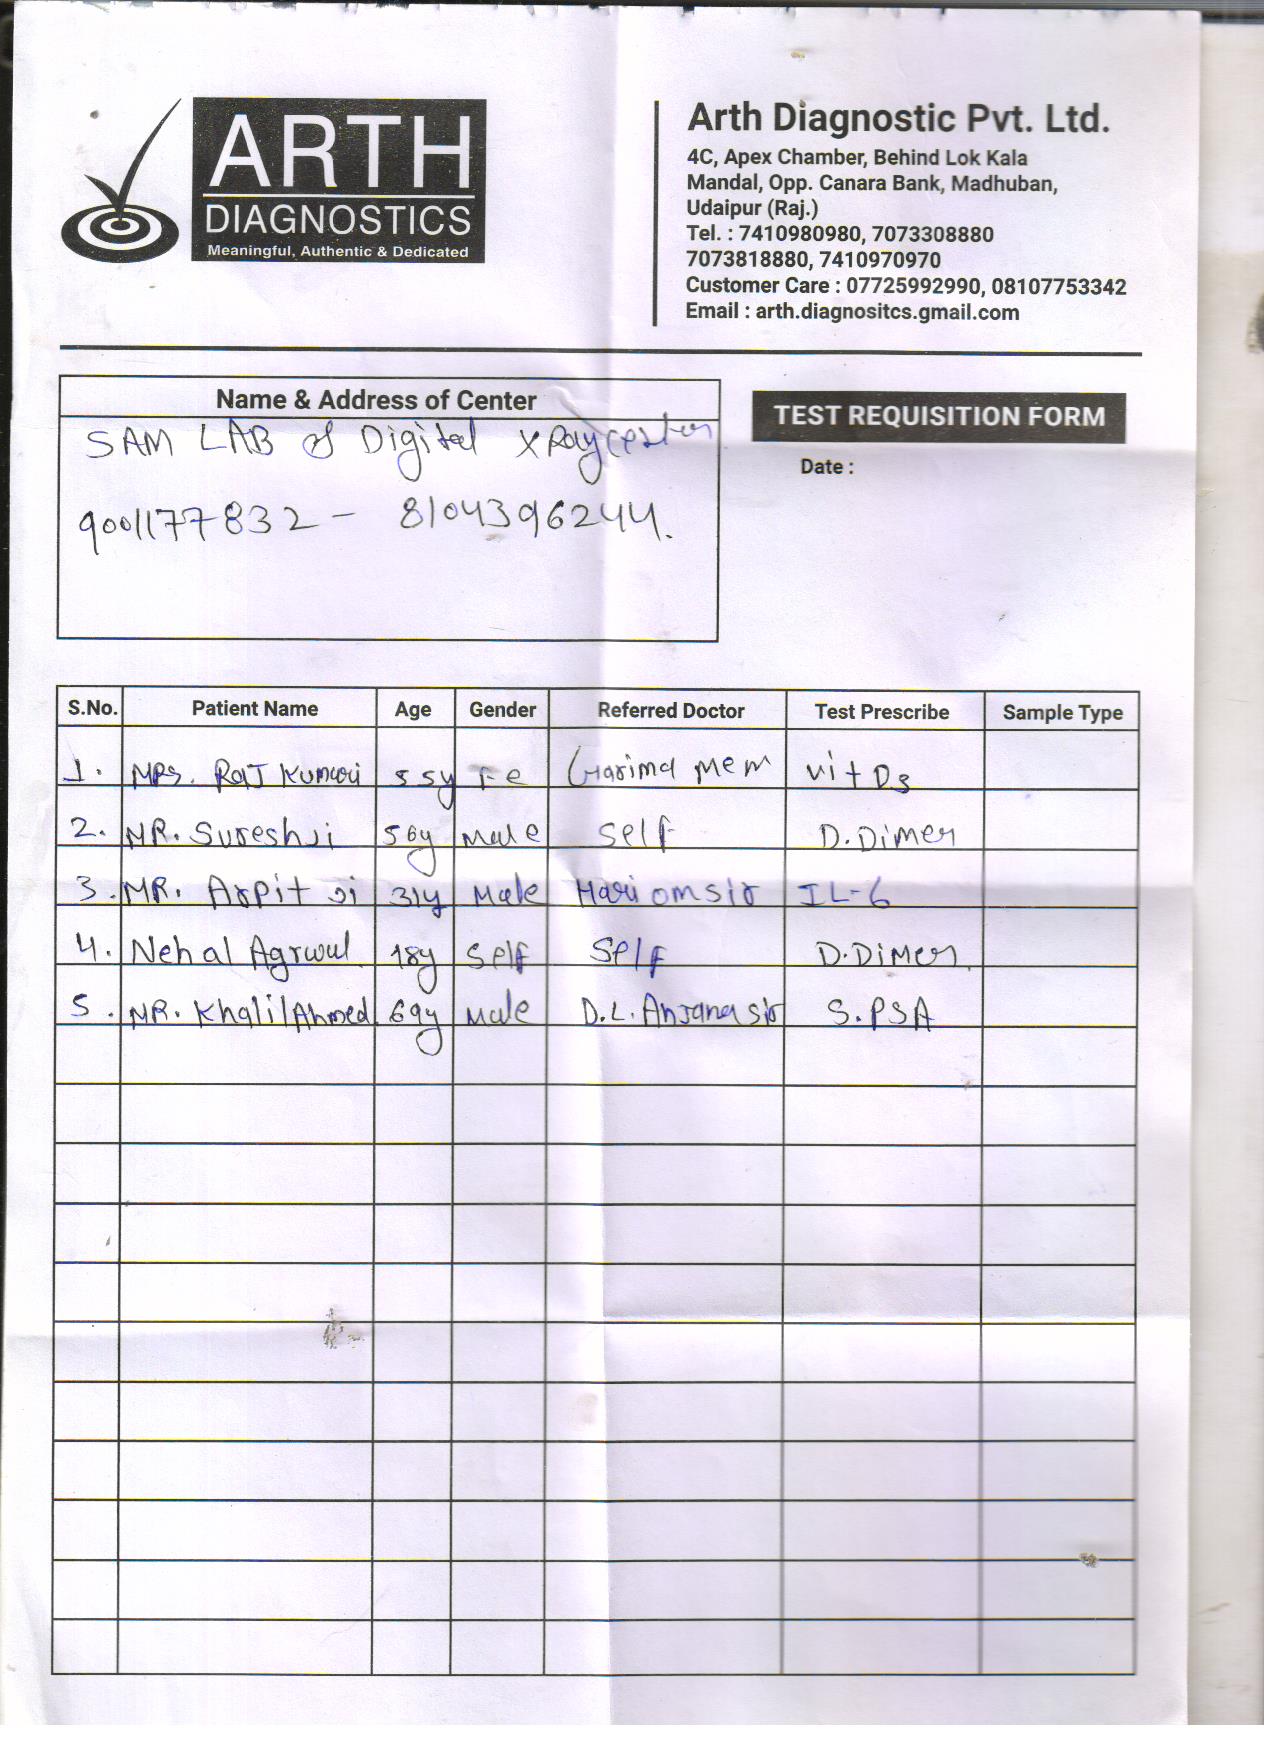 ARTH
DIAGNOSTICS
Meaningful, Authentic & Dedicated
Arth Diagnostic Pvt. Ltd.
4C, Apex Chamber, Behind Lok Kala
Mandal, Opp. Canara Bank, Madhuban,
Udaipur (Raj.)
Tel. : 7410980980, 7073308880
7073818880, 7410970970
Customer Care : 07725992990, 08107753342
Email : arth.diagnositcs.gmail.com
Name & Address of Center
SAM LAB & Digital X Ray center
9001177832 - 8104396244.
TEST REQUISITION FORM
Date :
S.No. Patient Name Age Gender Referred Doctor Test Prescribe Sample Type
1. MRS. RAJ Kumari 55y Fe Garima Mem vit D3
2. MR. Sureshji 56y Male Self D.Dimer
3. MR. Arpit Ji 31y Male Hariom sir IL-6
4. Nehal Agrwal 18y Self Self D.Dimer
5. MR. Khalil Ahmed 69y Male D.L. Anjana sir S.PSA